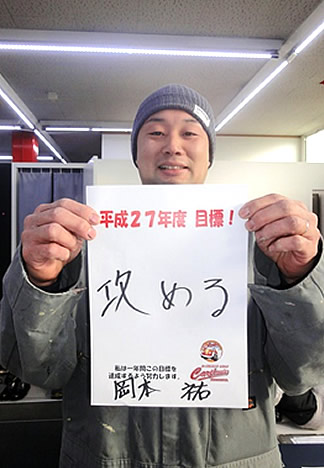 平成27年度 目標!
攻める
私は一年間この目標を
達成するよう努力します。
岡本 祐